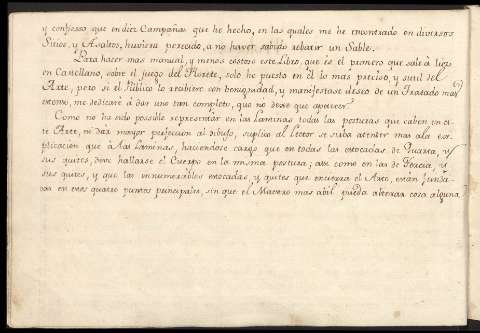 y confiesso que en diez Campañas que he hecho, en las quales me he encontrado en diversos
Sitios, y Asaltos, huviera perecido, a no haver sabido rebatir un Sable.
Para hacer mas manual, y menos costoso este Libro, que es el primero que sale à luz
en Castellano, sobre el juego del Florete, solo he puesto en èl lo mas preciso, y util del
Arte, pero si el Publico lo recibiere con benignidad, y manifestase deseo de un Tratado mas
extenso, me dedicarè à dar uno tan completo, que no desee que aparecer.
Como no ha sido possible representar en las Laminas todas las posturas que caben en es-
te Arte, ni dàr mayor perfeccion al dibujo, suplico al Lector se sirva atender mas à la ex-
plicacion que à las Laminas, haciendose cargo que en todas las estocadas de Quarta, y
sus quites, deve hallarse el Cuerpo en la misma postura; assi como en las de Tercia, y
sus quites, y que las innumerables estocadas, y quites que encierra el Arte, estàn funda-
das en tres quatro puntos principales, sin que el Maestro mas abil pueda alterar cosa alguna.